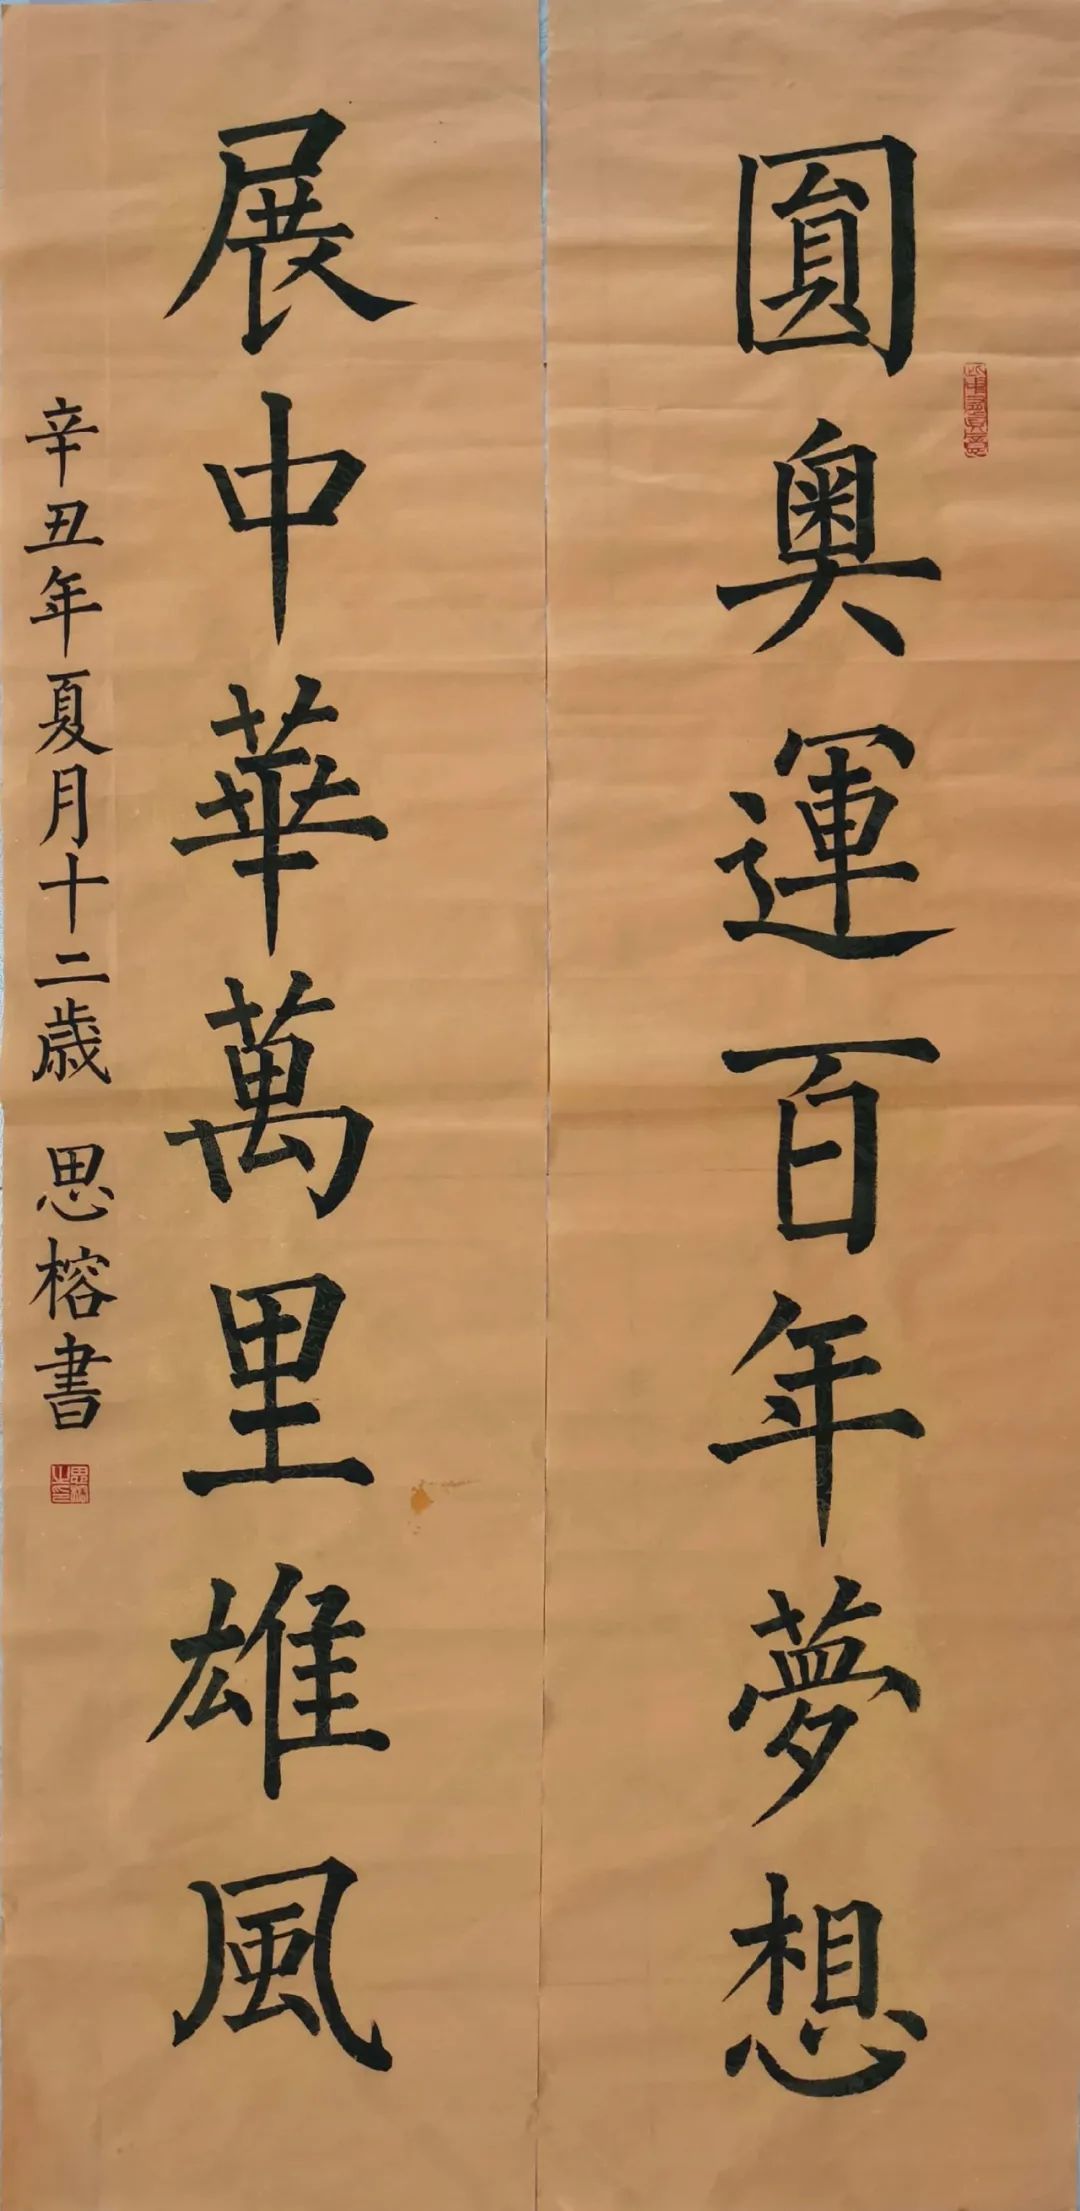 圓奥運百年夢想
展中華萬里雄風
辛丑年夏月十二歳 思榕書